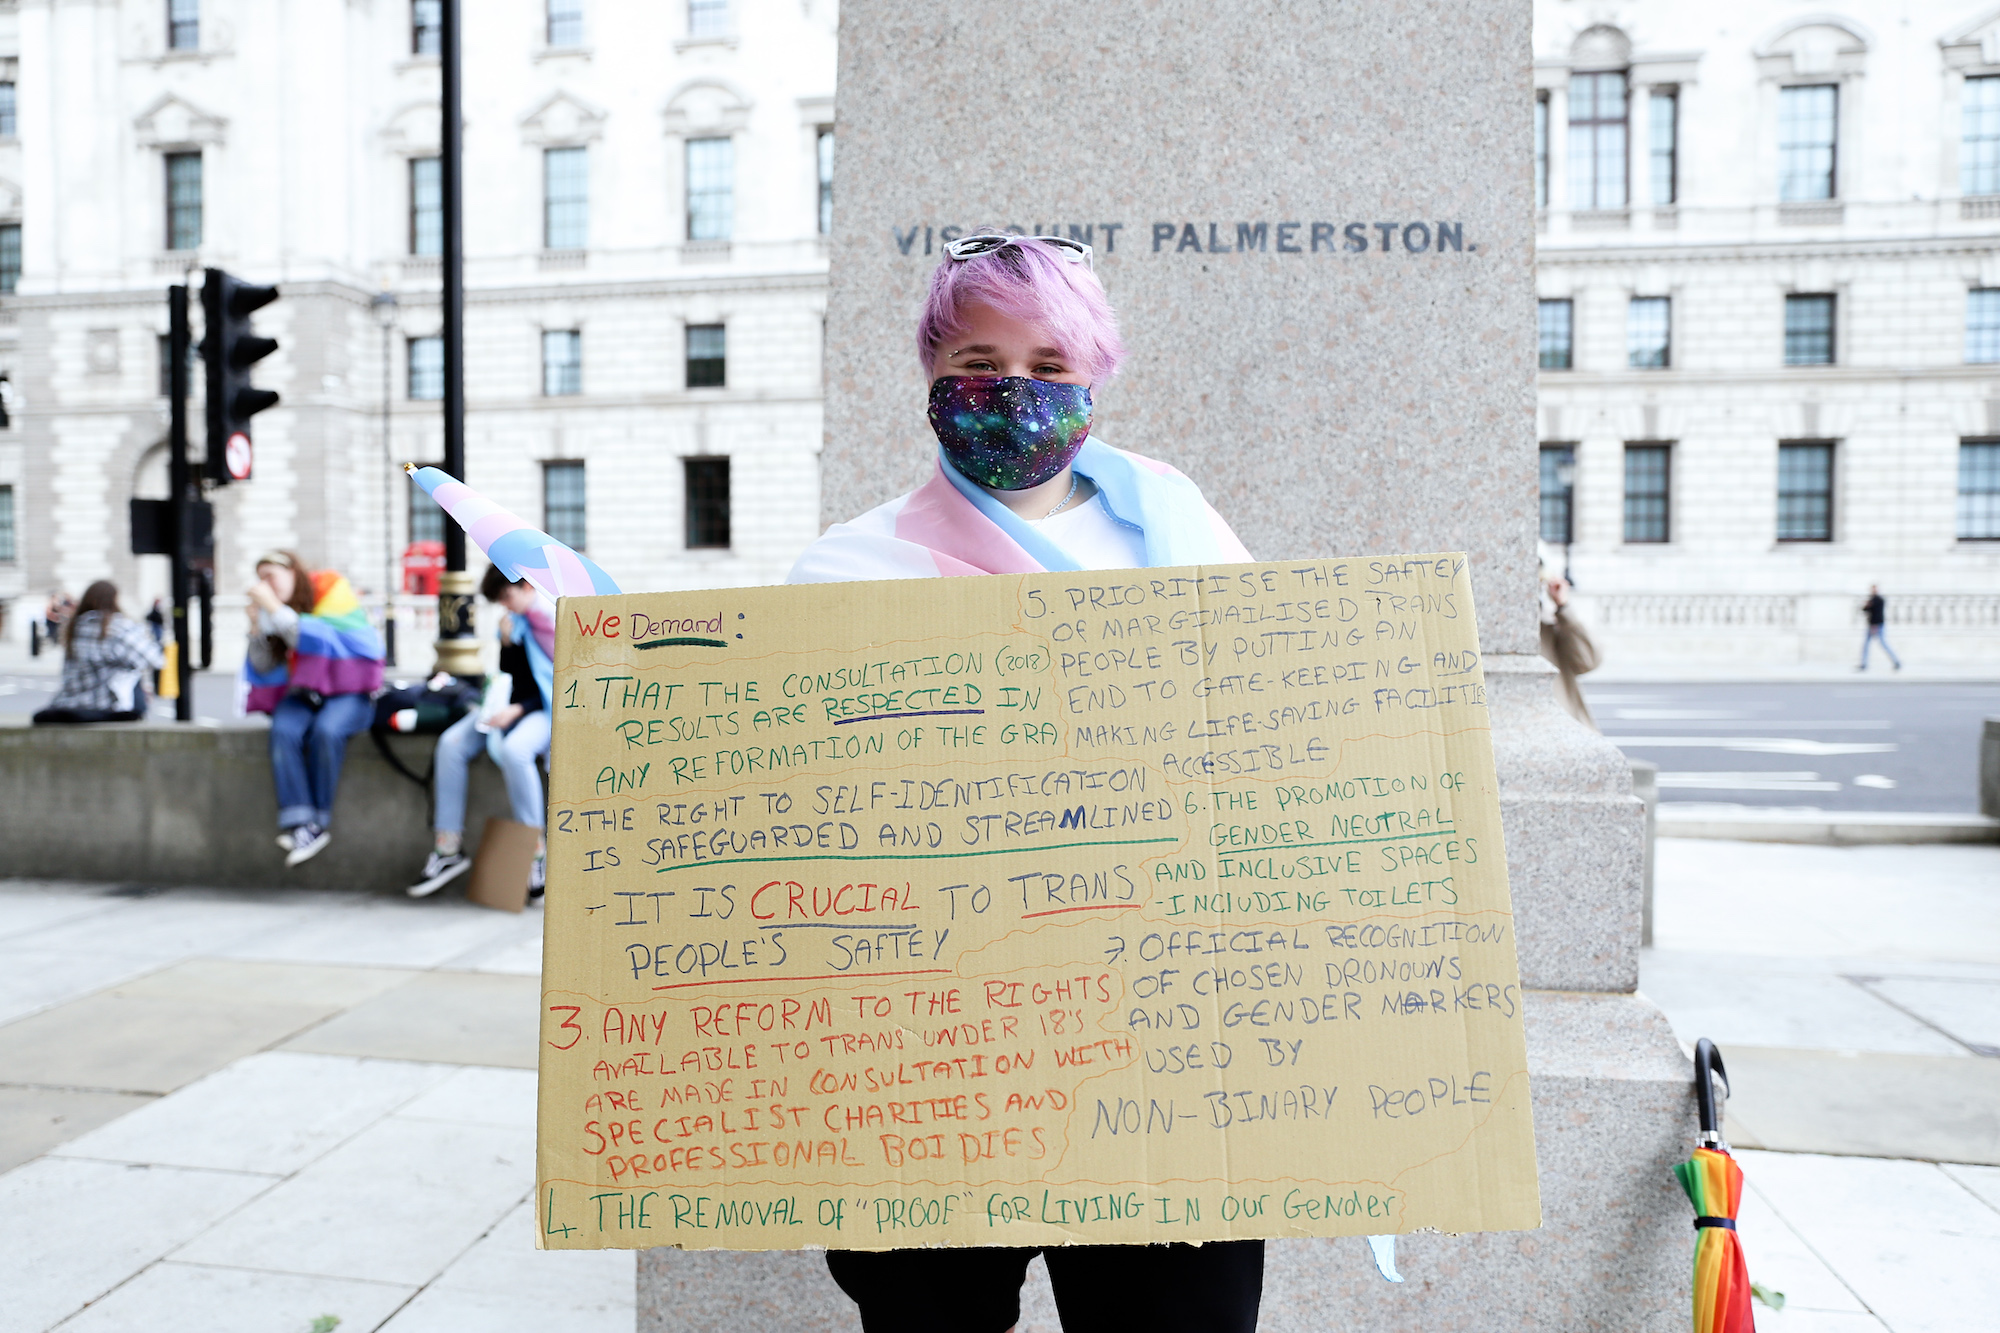 VISCOUNT PALMERSTON.
We Demand:
1. THAT THE CONSULTATION (2018)
RESULTS ARE RESPECTED IN
ANY REFORMATION OF THE GRA
2. THE RIGHT TO SELF-IDENTIFICATION
IS SAFEGUARDED AND STREAMLINED
- IT IS CRUCIAL TO TRANS
PEOPLE'S SAFTEY
3. ANY REFORM TO THE RIGHTS
AVAILABLE TO TRANS UNDER 18'S
ARE MADE IN CONSULTATION WITH
SPECIALIST CHARITIES AND
PROFESSIONAL BOIDIES
4. THE REMOVAL OF "PROOF" FOR LIVING IN OUR GENDER
5. PRIORITISE THE SAFTEY
OF MARGINAILISED TRANS
PEOPLE BY PUTTING AN
END TO GATE-KEEPING AND
MAKING LIFE-SAVING FACILITIES
ACCESSIBLE
6. THE PROMOTION OF
GENDER NEUTRAL
AND INCLUSIVE SPACES
- INCLUDING TOILETS
7. OFFICIAL RECOGNITION
OF CHOSEN PRONOUNS
AND GENDER MARKERS
USED BY
NON-BINARY PEOPLE